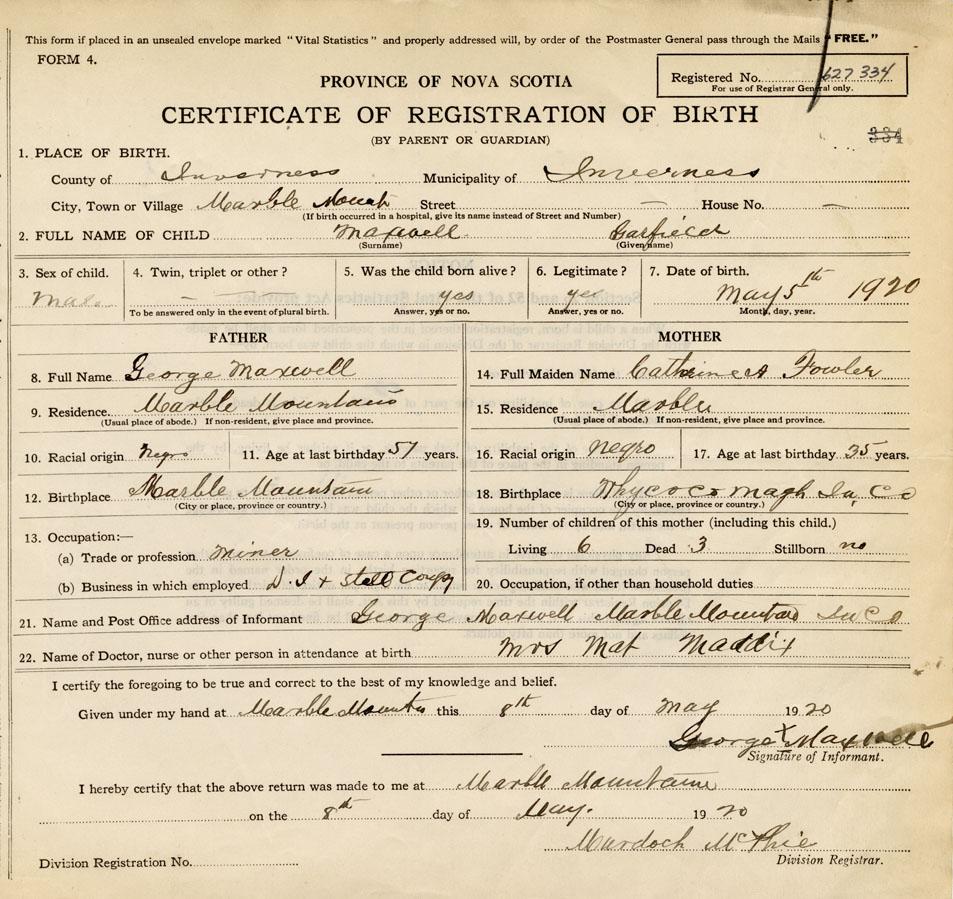 This form if placed in an unsealed envelope marked "Vital Statistics" and properly addressed will, by order of the Postmaster General pass through the Mails "FREE."
FORM 4.
PROVINCE OF NOVA SCOTIA
Registered No. 627 334
For use of Registrar General only.
CERTIFICATE OF REGISTRATION OF BIRTH
(BY PARENT OR GUARDIAN)
334
1. PLACE OF BIRTH.
County of Inverness Municipality of Inverness
City, Town or Village Marble Mount Street — House No. —
(If birth occurred in a hospital, give its name instead of Street and Number)
2. FULL NAME OF CHILD Maxwell Garfield
(Surname) (Given name)
3. Sex of child. 4. Twin, triplet or other? 5. Was the child born alive? 6. Legitimate? 7. Date of birth.
Mal. — — yes yes May 5th 1920
To be answered only in the event of plural birth. Answer, yes or no. Answer, yes or no. Month, day, year.
FATHER
8. Full Name George Maxwell
9. Residence. Marble Mountain
(Usual place of abode.) If non-resident, give place and province.
10. Racial origin Negro 11. Age at last birthday 51 years.
12. Birthplace Marble Mountain
(City or place, province or country.)
13. Occupation:—
(a) Trade or profession Miner
(b) Business in which employed D. I + Steel Coupy
MOTHER
14. Full Maiden Name Cathrine A Fowler
15. Residence Marble
(Usual place of abode.) If non-resident, give place and province.
16. Racial origin Negro 17. Age at last birthday 35 years.
18. Birthplace Whycocomagh In. Co
(City or place, province or country.)
19. Number of children of this mother (including this child.)
Living 6 Dead 3 Stillborn no
20. Occupation, if other than household duties
21. Name and Post Office address of Informant George Maxwell Marble Mountain In Co
22. Name of Doctor, nurse or other person in attendance at birth Mrs Mat Maddix
I certify the foregoing to be true and correct to the best of my knowledge and belief.
Given under my hand at Marble Mountn this 8th day of May 1920
George X Maxwell
Signature of Informant.
I hereby certify that the above return was made to me at Marble Mountain
on the 8th day of May. 1920
Murdoch McPhie
Division Registration No. Division Registrar.